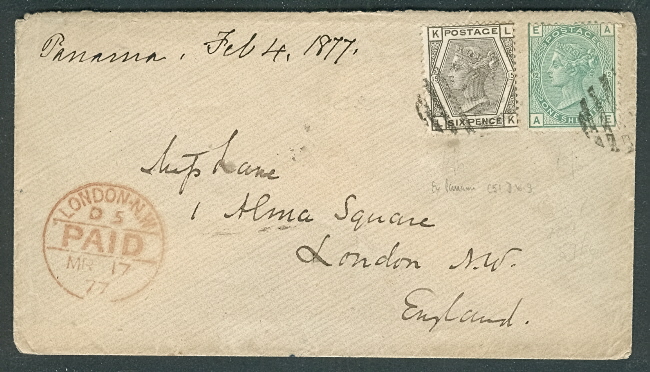 Panama, Feb 4, 1877.
K POSTAGE L
L SIX PENCE K
E POSTAGE A
A ONE SHI E
Miss Lane
1 Alma Square
London N.W.
England.
LONDON·N.W
D 5
PAID
MR 17
77